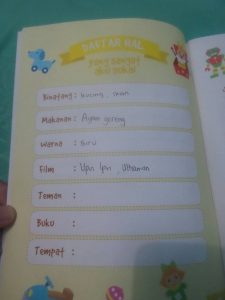 DAFTAR HAL
yang sangat
aku sukai
Binatang : kucing, ikan
Makanan : Ayam goreng
Warna : biru
Film : Upin Ipin, Ultraman
Teman :
Buku :
Tempat :